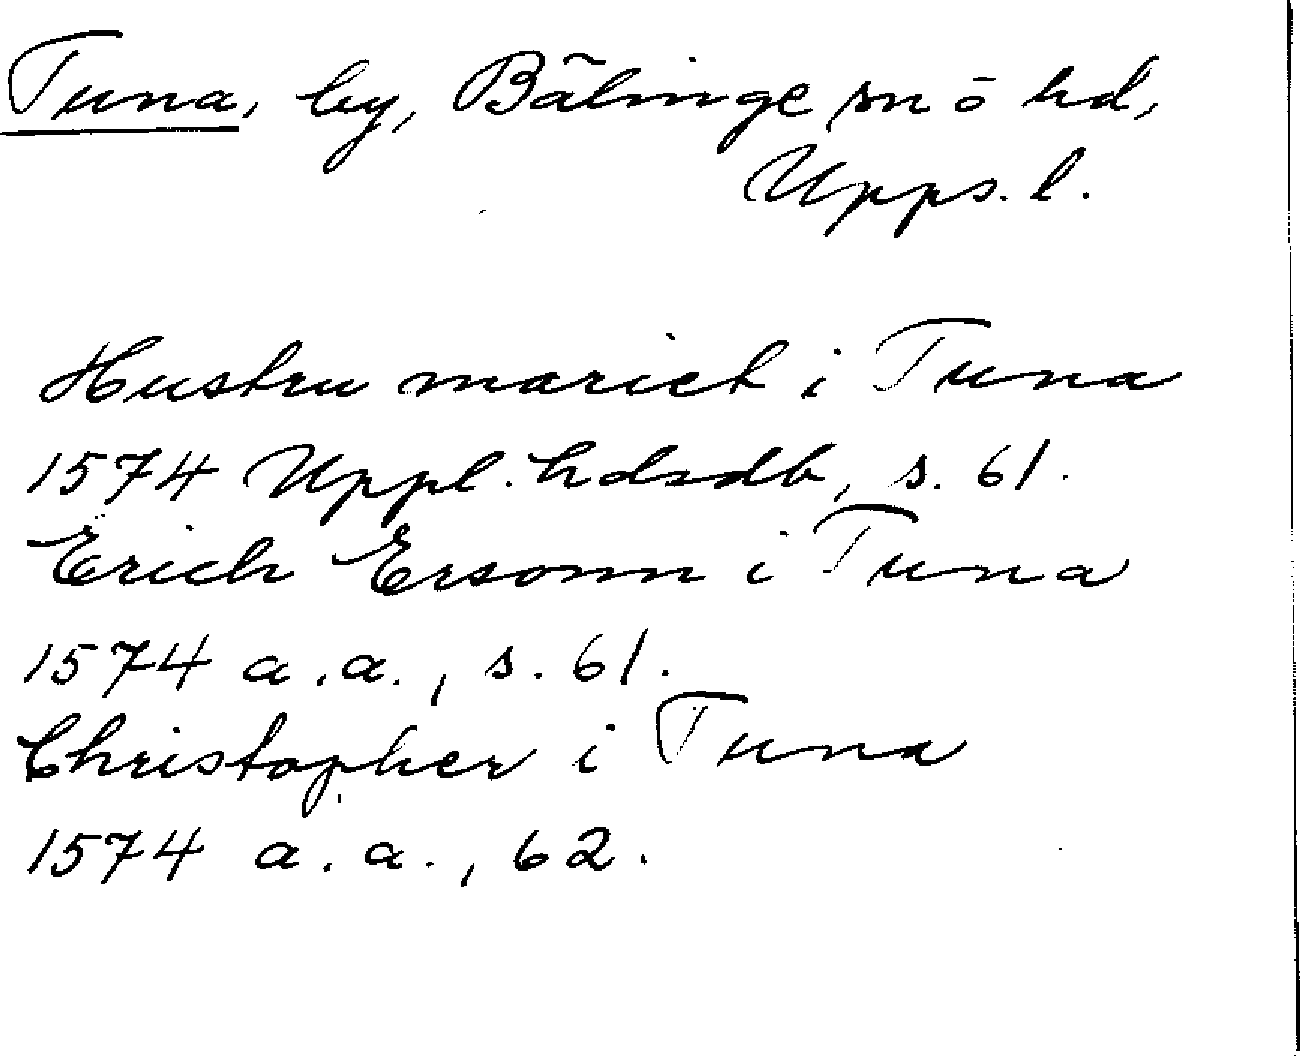 Tuna, by, Bälinge sn o hd,
Upps. l.
Hustru mariet i Tuna
1574 Uppl. hdsdb, s. 61.
Erich Ersonn i Tuna
1574 a.a., s. 61.
Christopher i Tuna
1574 a.a., 62.